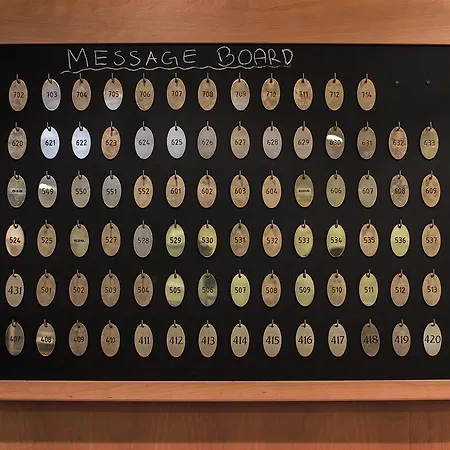 MESSAGE BOARD
702 703 704 705 706 707 708 709 710 711 712 714
620 621 622 623 624 625 626 627 628 629 630 631 632 433
549 550 551 552 601 602 603 604 606 607 608 609
524 525 527 528 529 530 531 532 533 534 535 536 537
431 501 502 503 504 505 506 507 508 509 510 511 512 513
407 408 409 410 411 412 413 414 415 416 417 418 419 420